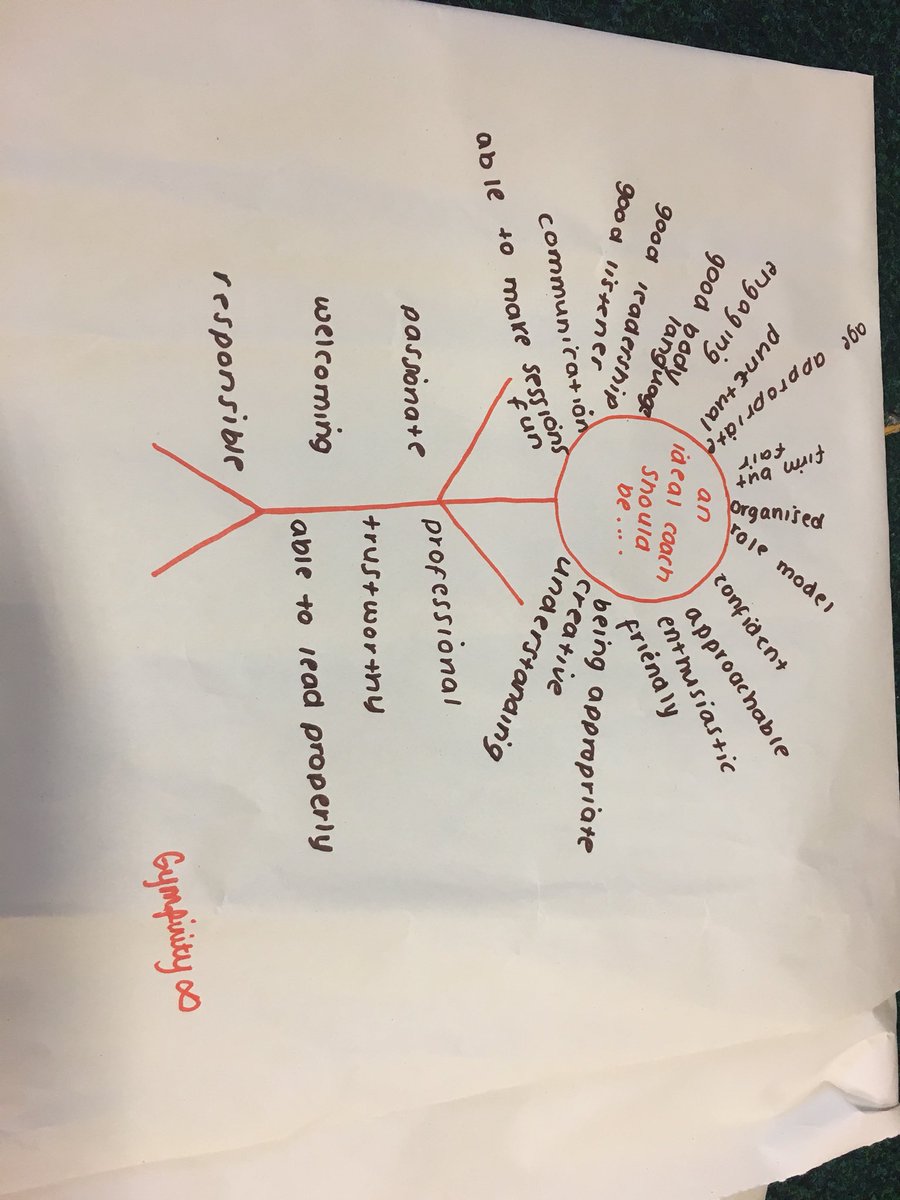 an
ideal coach
should
be....
able to make sessions
fun
communication
good listener
good leadership
good body
language
engaging
punctual
age appropriate
firm but
fair
organised
role model
confident
approachable
enthusiastic
friendly
being appropriate
creative
understanding
passionate
welcoming
responsible
professional
trustworthy
able to lead properly
Gymfinity ∞